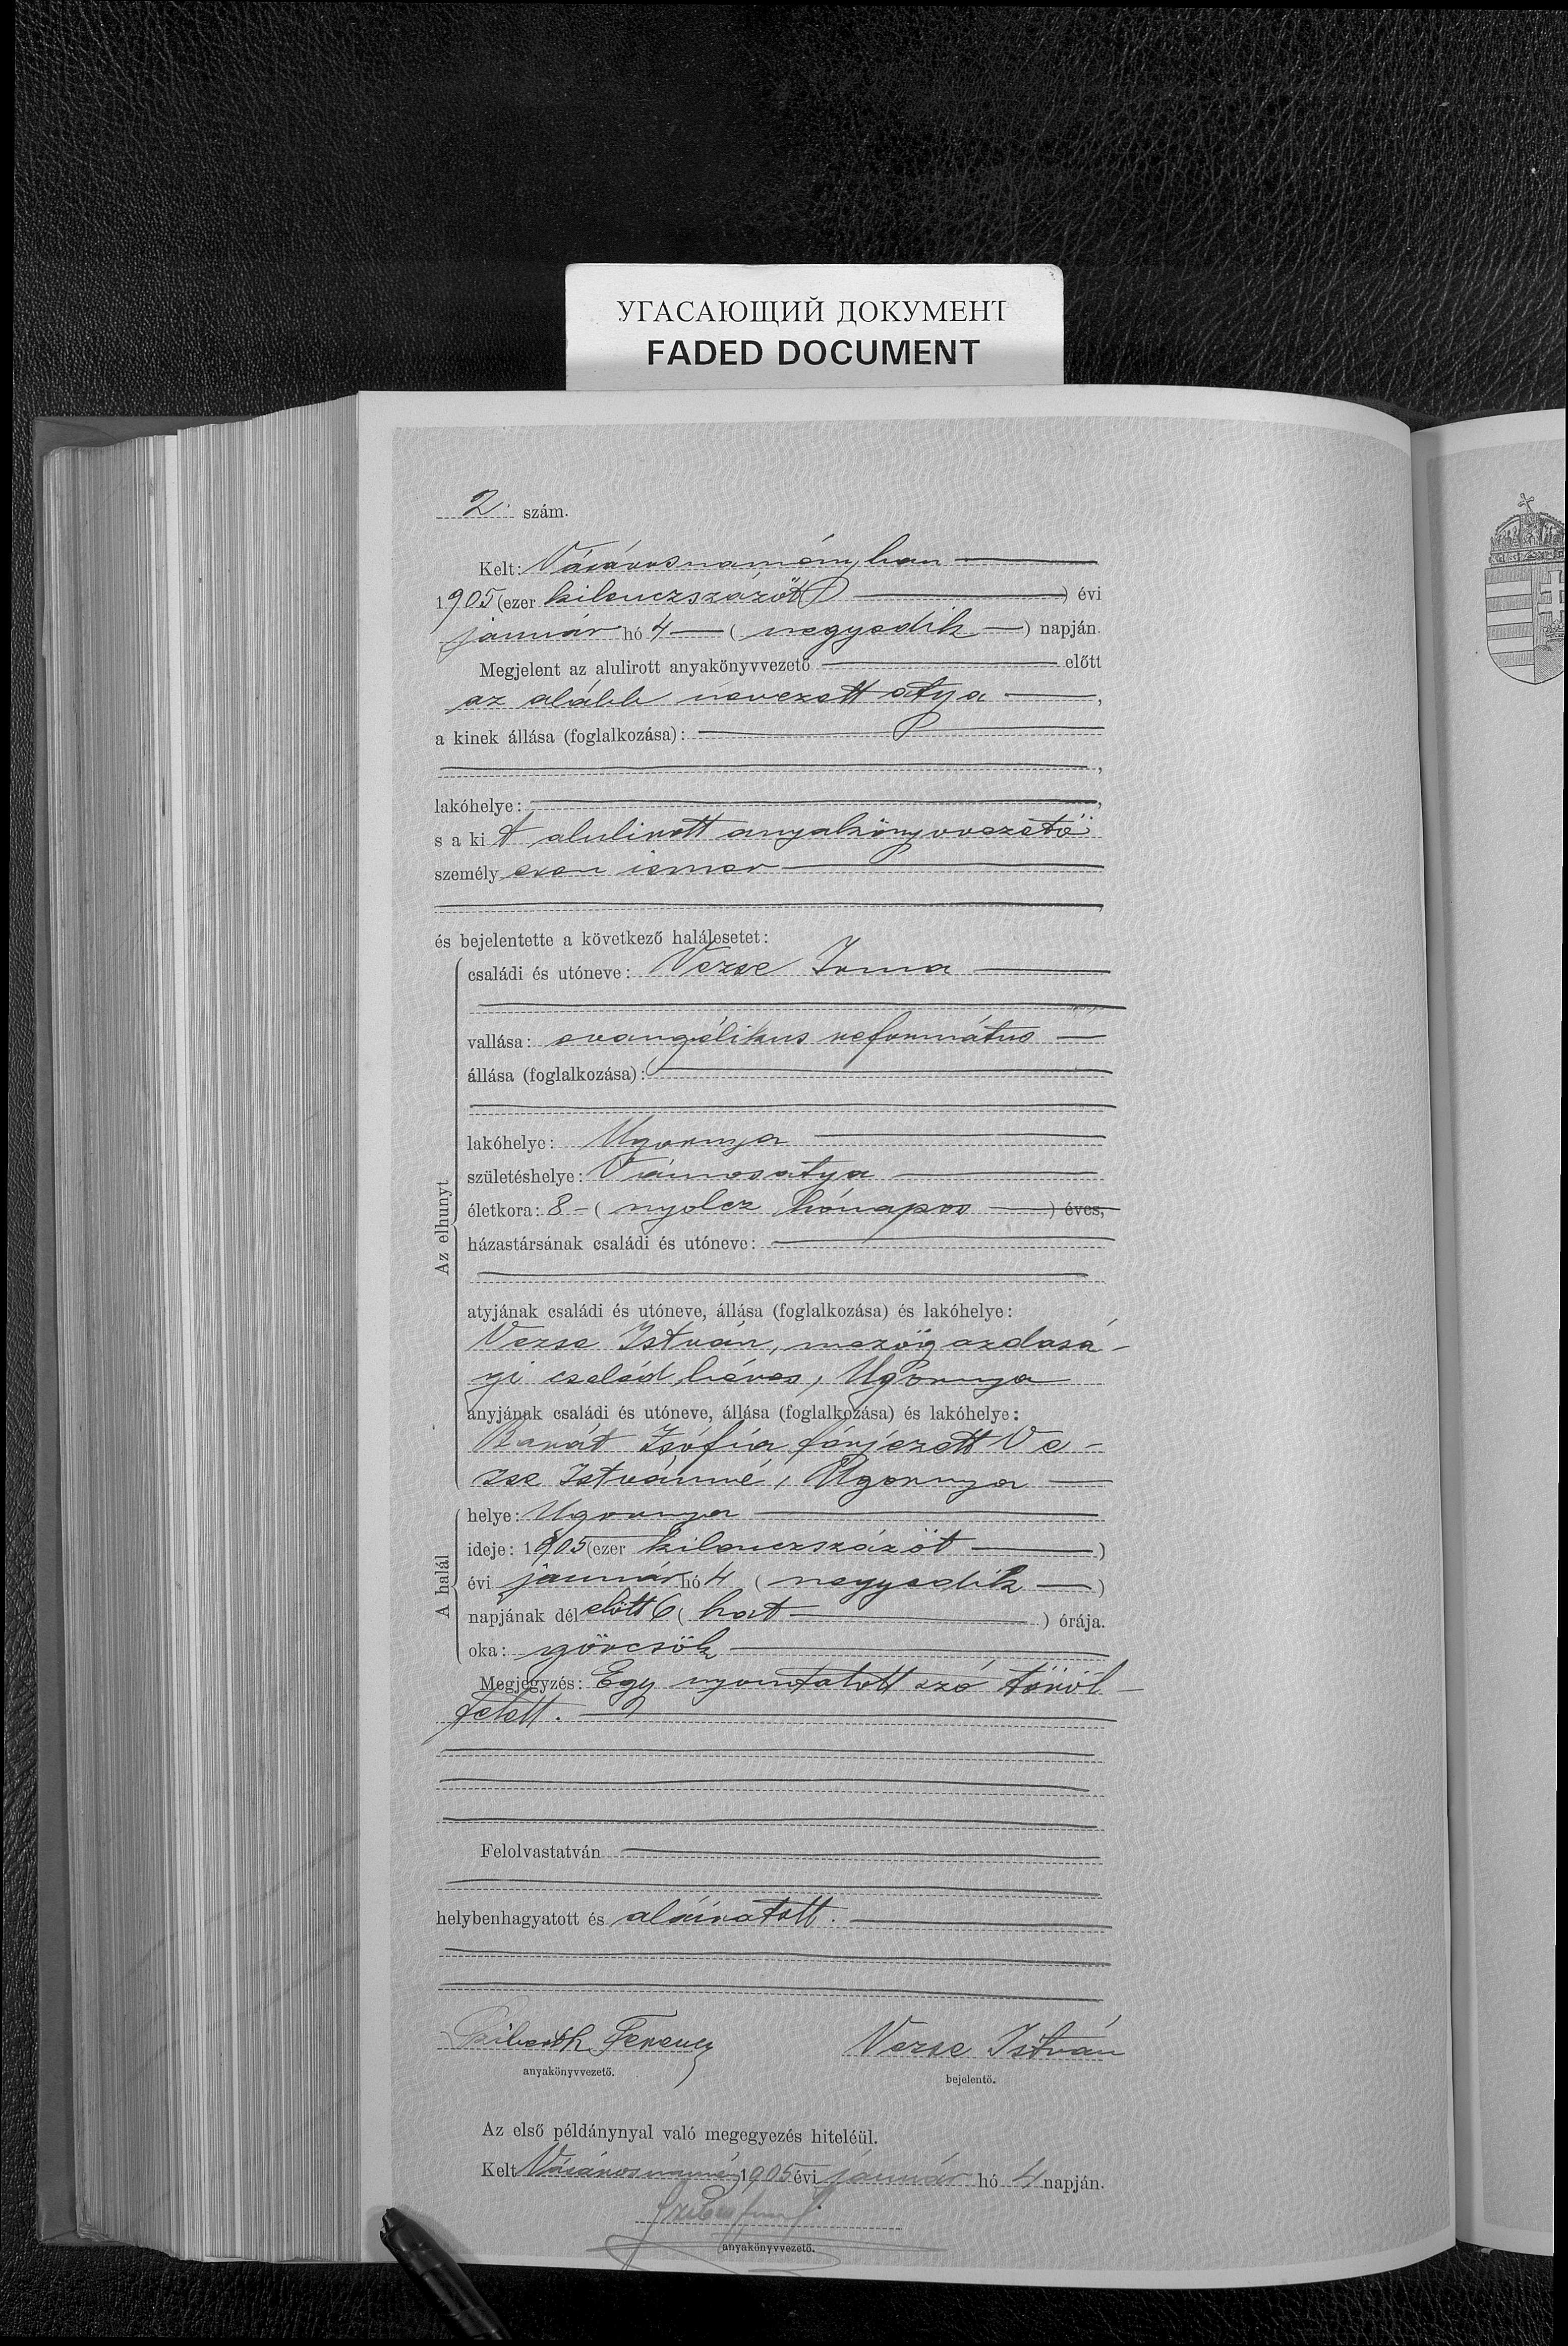 УГАСАЮЩИЙ ДОКУМЕНТ
FADED DOCUMENT
2. szám.
Kelt: Vásárosnaményban
1905 (ezer kilenczszázöt) évi
január hó 4 (negyedik) napján.
Megjelent az alulirott anyakönyvvezető előtt
az alább nevezett atya,
a kinek állása (foglalkozása):
,
lakóhelye: ,
s a kit alulirott anyakönyvvezető
személyesen ismer
és bejelentette a következő halálesetet:
Az elhunyt
családi és utóneve: Vezse Irma
vallása: evangélikus református
állása (foglalkozása):
lakóhelye: Ugornya
születéshelye: Vámosatya
életkora: 8 - (nyolcz hónapos) éves,
házastársának családi és utóneve:
atyjának családi és utóneve, állása (foglalkozása) és lakóhelye:
Vezse István, mezőgazdasá-
gi cseléd béres, Ugornya
anyjának családi és utóneve, állása (foglalkozása) és lakóhelye:
Barát Zsófia férjezett Ve-
zse Istvánné, Ugornya
A halál
helye: Ugornya
ideje: 1905 (ezer kilenczszázöt)
évi január hó 4 (negyedik)
napjának délelőtt 6 (hat) órája.
oka: görcsök
Megjegyzés: Egy nyomtatott szó töröl-
tetett.
Felolvastatván
helybenhagyatott és aláiratott.
Ferencz Vezse István
anyakönyvvezető. bejelentő.
Az első példánynyal való megegyezés hiteléül.
Kelt Vásárosnamény 1905 évi január hó 4 napján.
anyakönyvvezető.